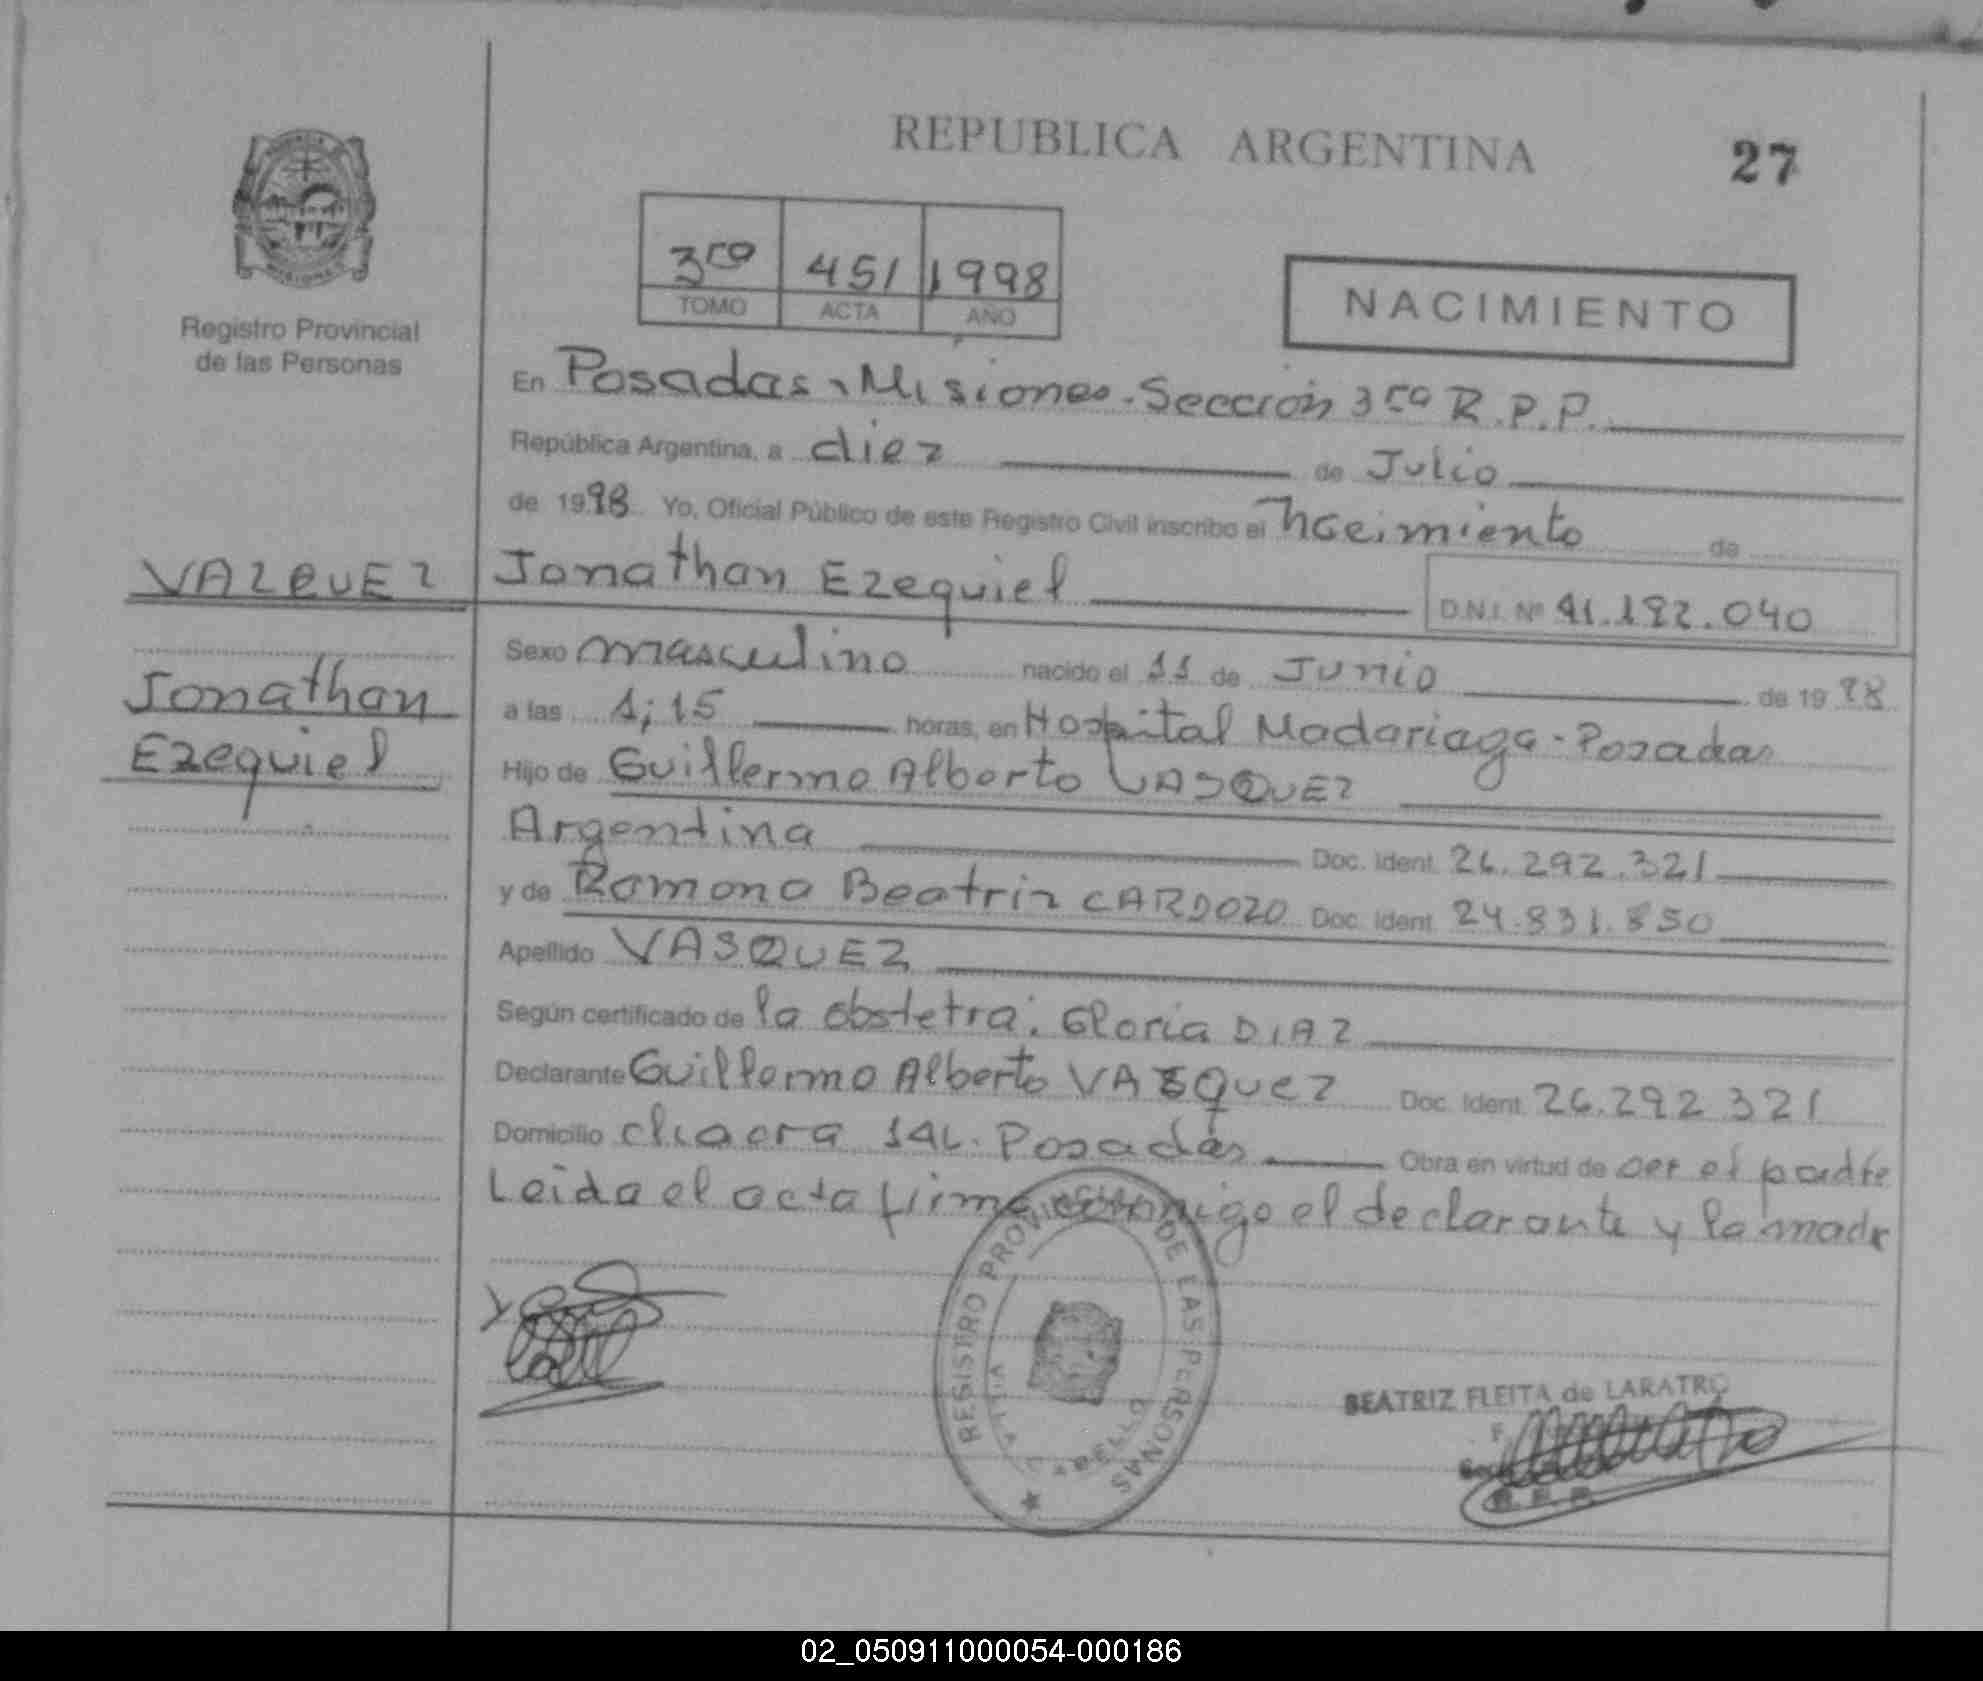 REPUBLICA ARGENTINA
27
Registro Provincial
de las Personas
3ra 451 1998
TOMO ACTA AÑO
NACIMIENTO
En Posadas, Misiones. Sección 3ra R.P.P.
República Argentina, a diez de Julio
de 1998 Yo, Oficial Público de este Registro Civil inscribo el Nacimiento de
VAZQUEZ
Jonathan Ezequiel D.N.I. Nº 41.192.040
Jonathan
Ezequiel
Sexo masculino nacido el 11 de Junio de 1998
a las 1;15 horas, en Hospital Madariaga - Posadas
Hijo de Guillermo Alberto VASQUEZ
Argentina Doc. Ident. 26.292.321
y de Ramona Beatriz CARDOZO Doc. Ident. 24.831.850
Apellido VASQUEZ
Según certificado de la obstetra: Gloria DIAZ
Declarante Guillermo Alberto VASQUEZ Doc. Ident. 26.292 321
Domicilio chacra Posadas Obra en virtud de ser el padre
Leida el acta firma conmigo el declarante y la madre
REGISTRO PROVINCIAL DE LAS PERSONAS
BEATRIZ FLEITA de LARATRO
02_050911000054-000186